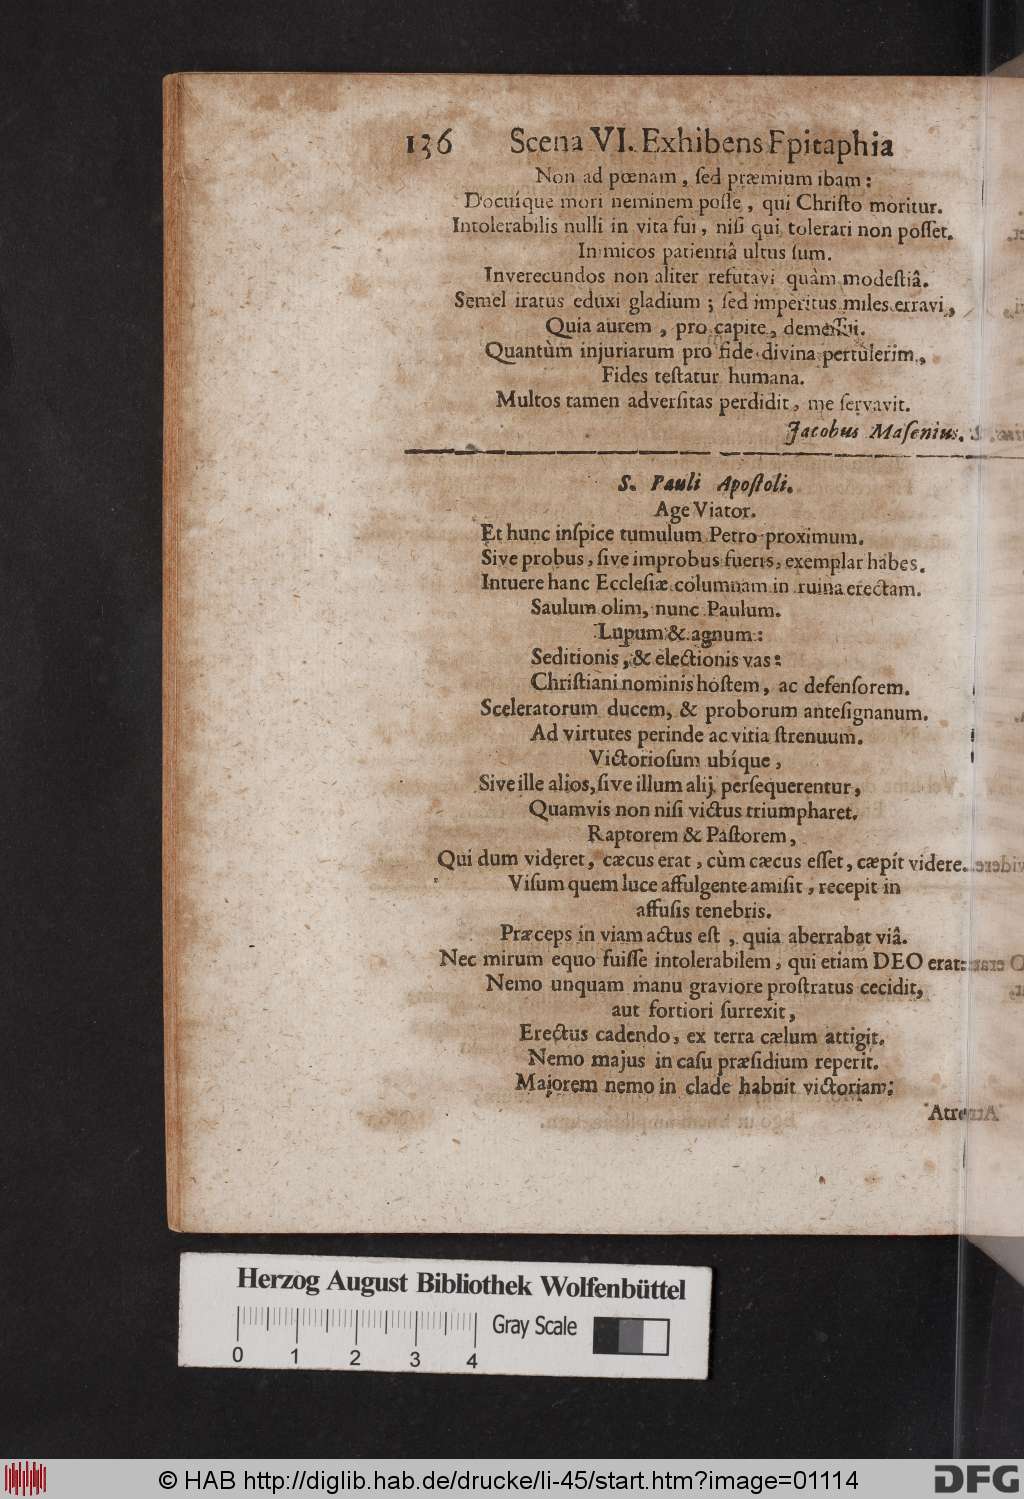 136 Scena VI. Exhibens Epitaphia
Non ad pœnam, ſed præmium ibam:
Docuíque mori neminem poſſe, qui Chriſto moritur.
Intolerabilis nulli in vita fui, niſi qui tolerari non poſſet.
Inimicos patientiâ ultus ſum.
Inverecundos non aliter refutavi quàm modeſtiâ.
Semel iratus eduxi gladium; ſed imperitus miles erravi,
Quia aurem, pro capite, demeſſui.
Quantùm injuriarum pro fide divina pertulerim,
Fides teſtatur humana.
Multos tamen adverſitas perdidit, me ſervavit.
Jacobus Maſenius.
S. Pauli Apoſtoli.
Age Viator.
Et hunc inſpice tumulum Petro proximum.
Sive probus, ſive improbus fueris, exemplar habes.
Intuere hanc Eccleſiæ columnam in ruina erectam.
Saulum olim, nunc Paulum.
Lupum & agnum:
Seditionis, & electionis vas:
Chriſtiani nominis hoſtem, ac defenſorem.
Sceleratorum ducem, & proborum anteſignanum.
Ad virtutes perinde ac vitia ſtrenuum.
Victorioſum ubíque,
Sive ille alios, ſive illum alij perſequerentur,
Quamvis non niſi victus triumpharet.
Raptorem & Paſtorem,
Qui dum videret, cæcus erat, cùm cæcus eſſet, cæpit videre.
Viſum quem luce affulgente amiſit, recepit in
affuſis tenebris.
Præceps in viam actus eſt, quia aberrabat viâ.
Nec mirum equo fuiſſe intolerabilem, qui etiam DEO erat:
Nemo unquam manu graviore proſtratus cecidit,
aut fortiori ſurrexit,
Erectus cadendo, ex terra cælum attigit.
Nemo majus in caſu præſidium reperit.
Majorem nemo in clade habuit victoriam:
Herzog August Bibliothek Wolfenbüttel
Gray Scale
0 1 2 3 4
© HAB http://diglib.hab.de/drucke/li-45/start.htm?image=01114
DFG